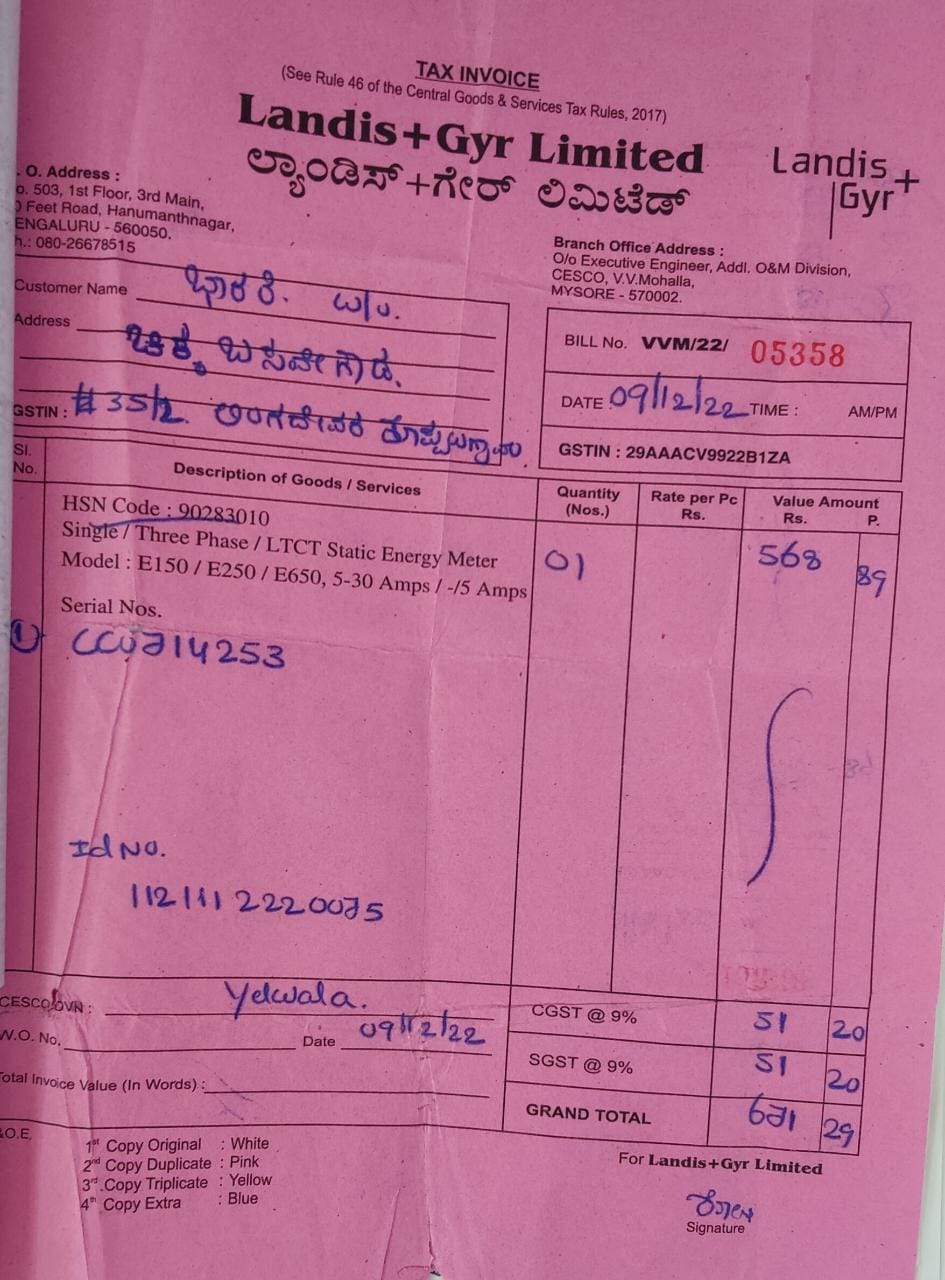 TAX INVOICE
(See Rule 46 of the Central Goods & Services Tax Rules, 2017)
Landis+Gyr Limited
ಲ್ಯಾಂಡಿಸ್+ಗೇರ್ ಲಿಮಿಟೆಡ್
Landis+
Gyr
. O. Address :
o. 503, 1st Floor, 3rd Main,
0 Feet Road, Hanumanthnagar,
ENGALURU - 560050.
h.: 080-26678515
Branch Office Address :
O/o Executive Engineer, Addl. O&M Division,
CESCO, V.V.Mohalla,
MYSORE - 570002.
Customer Name
Address
ಚಿಕ್ಕ ಬಸವೇಗೌಡ.
GSTIN : #35/2.
BILL No. VVM/22/ 05358
DATE 09/12/22 TIME : AM/PM
GSTIN : 29AAACV9922B1ZA
Sl. No. Description of Goods / Services Quantity (Nos.) Rate per Pc Rs. Value Amount Rs. P.
HSN Code : 90283010
Single / Three Phase / LTCT Static Energy Meter 01 568 89
Model : E150 / E250 / E650, 5-30 Amps / -/5 Amps
Serial Nos.
1 714253
Id No.
11211112220075
CESCO DVN : Yelwala.
W.O. No. Date 09/12/22
Total Invoice Value (In Words) :
CGST @ 9% 51 20
SGST @ 9% 51 20
GRAND TOTAL 671 29
&.O.E.
1st Copy Original : White
2nd Copy Duplicate : Pink
3rd Copy Triplicate : Yellow
4th Copy Extra : Blue
For Landis+Gyr Limited
Signature